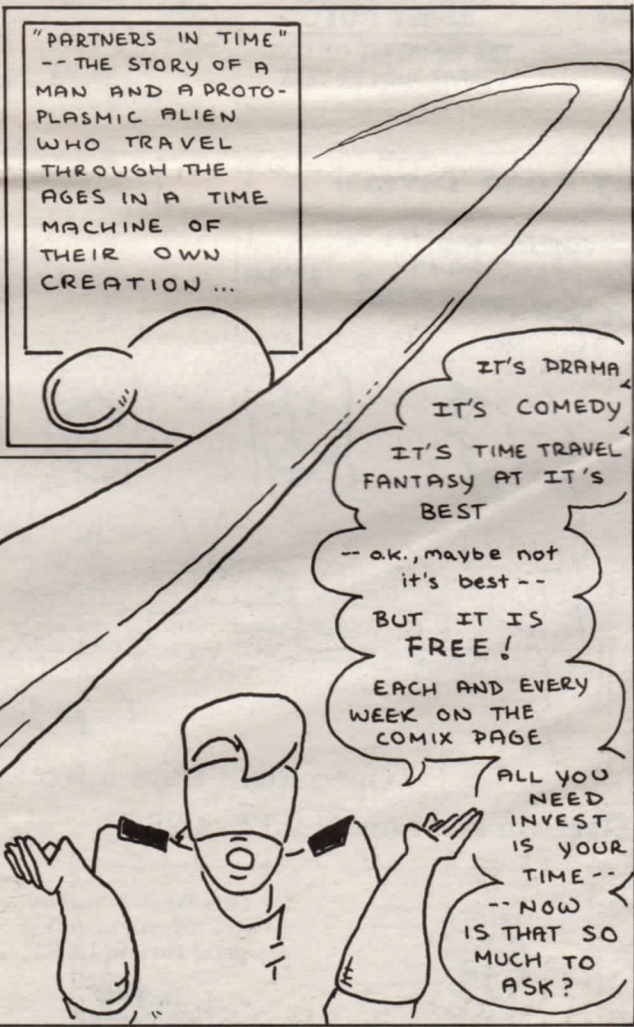 "PARTNERS IN TIME"
-- THE STORY OF A
MAN AND A PROTO-
PLASMIC ALIEN
WHO TRAVEL
THROUGH THE
AGES IN A TIME
MACHINE OF
THEIR OWN
CREATION...
IT'S DRAMA
IT'S COMEDY
IT'S TIME TRAVEL
FANTASY AT IT'S
BEST
-- o.k., maybe not
it's best --
BUT IT IS
FREE!
EACH AND EVERY
WEEK ON THE
COMIX PAGE
ALL YOU
NEED
INVEST
IS YOUR
TIME --
-- NOW
IS THAT SO
MUCH TO
ASK?